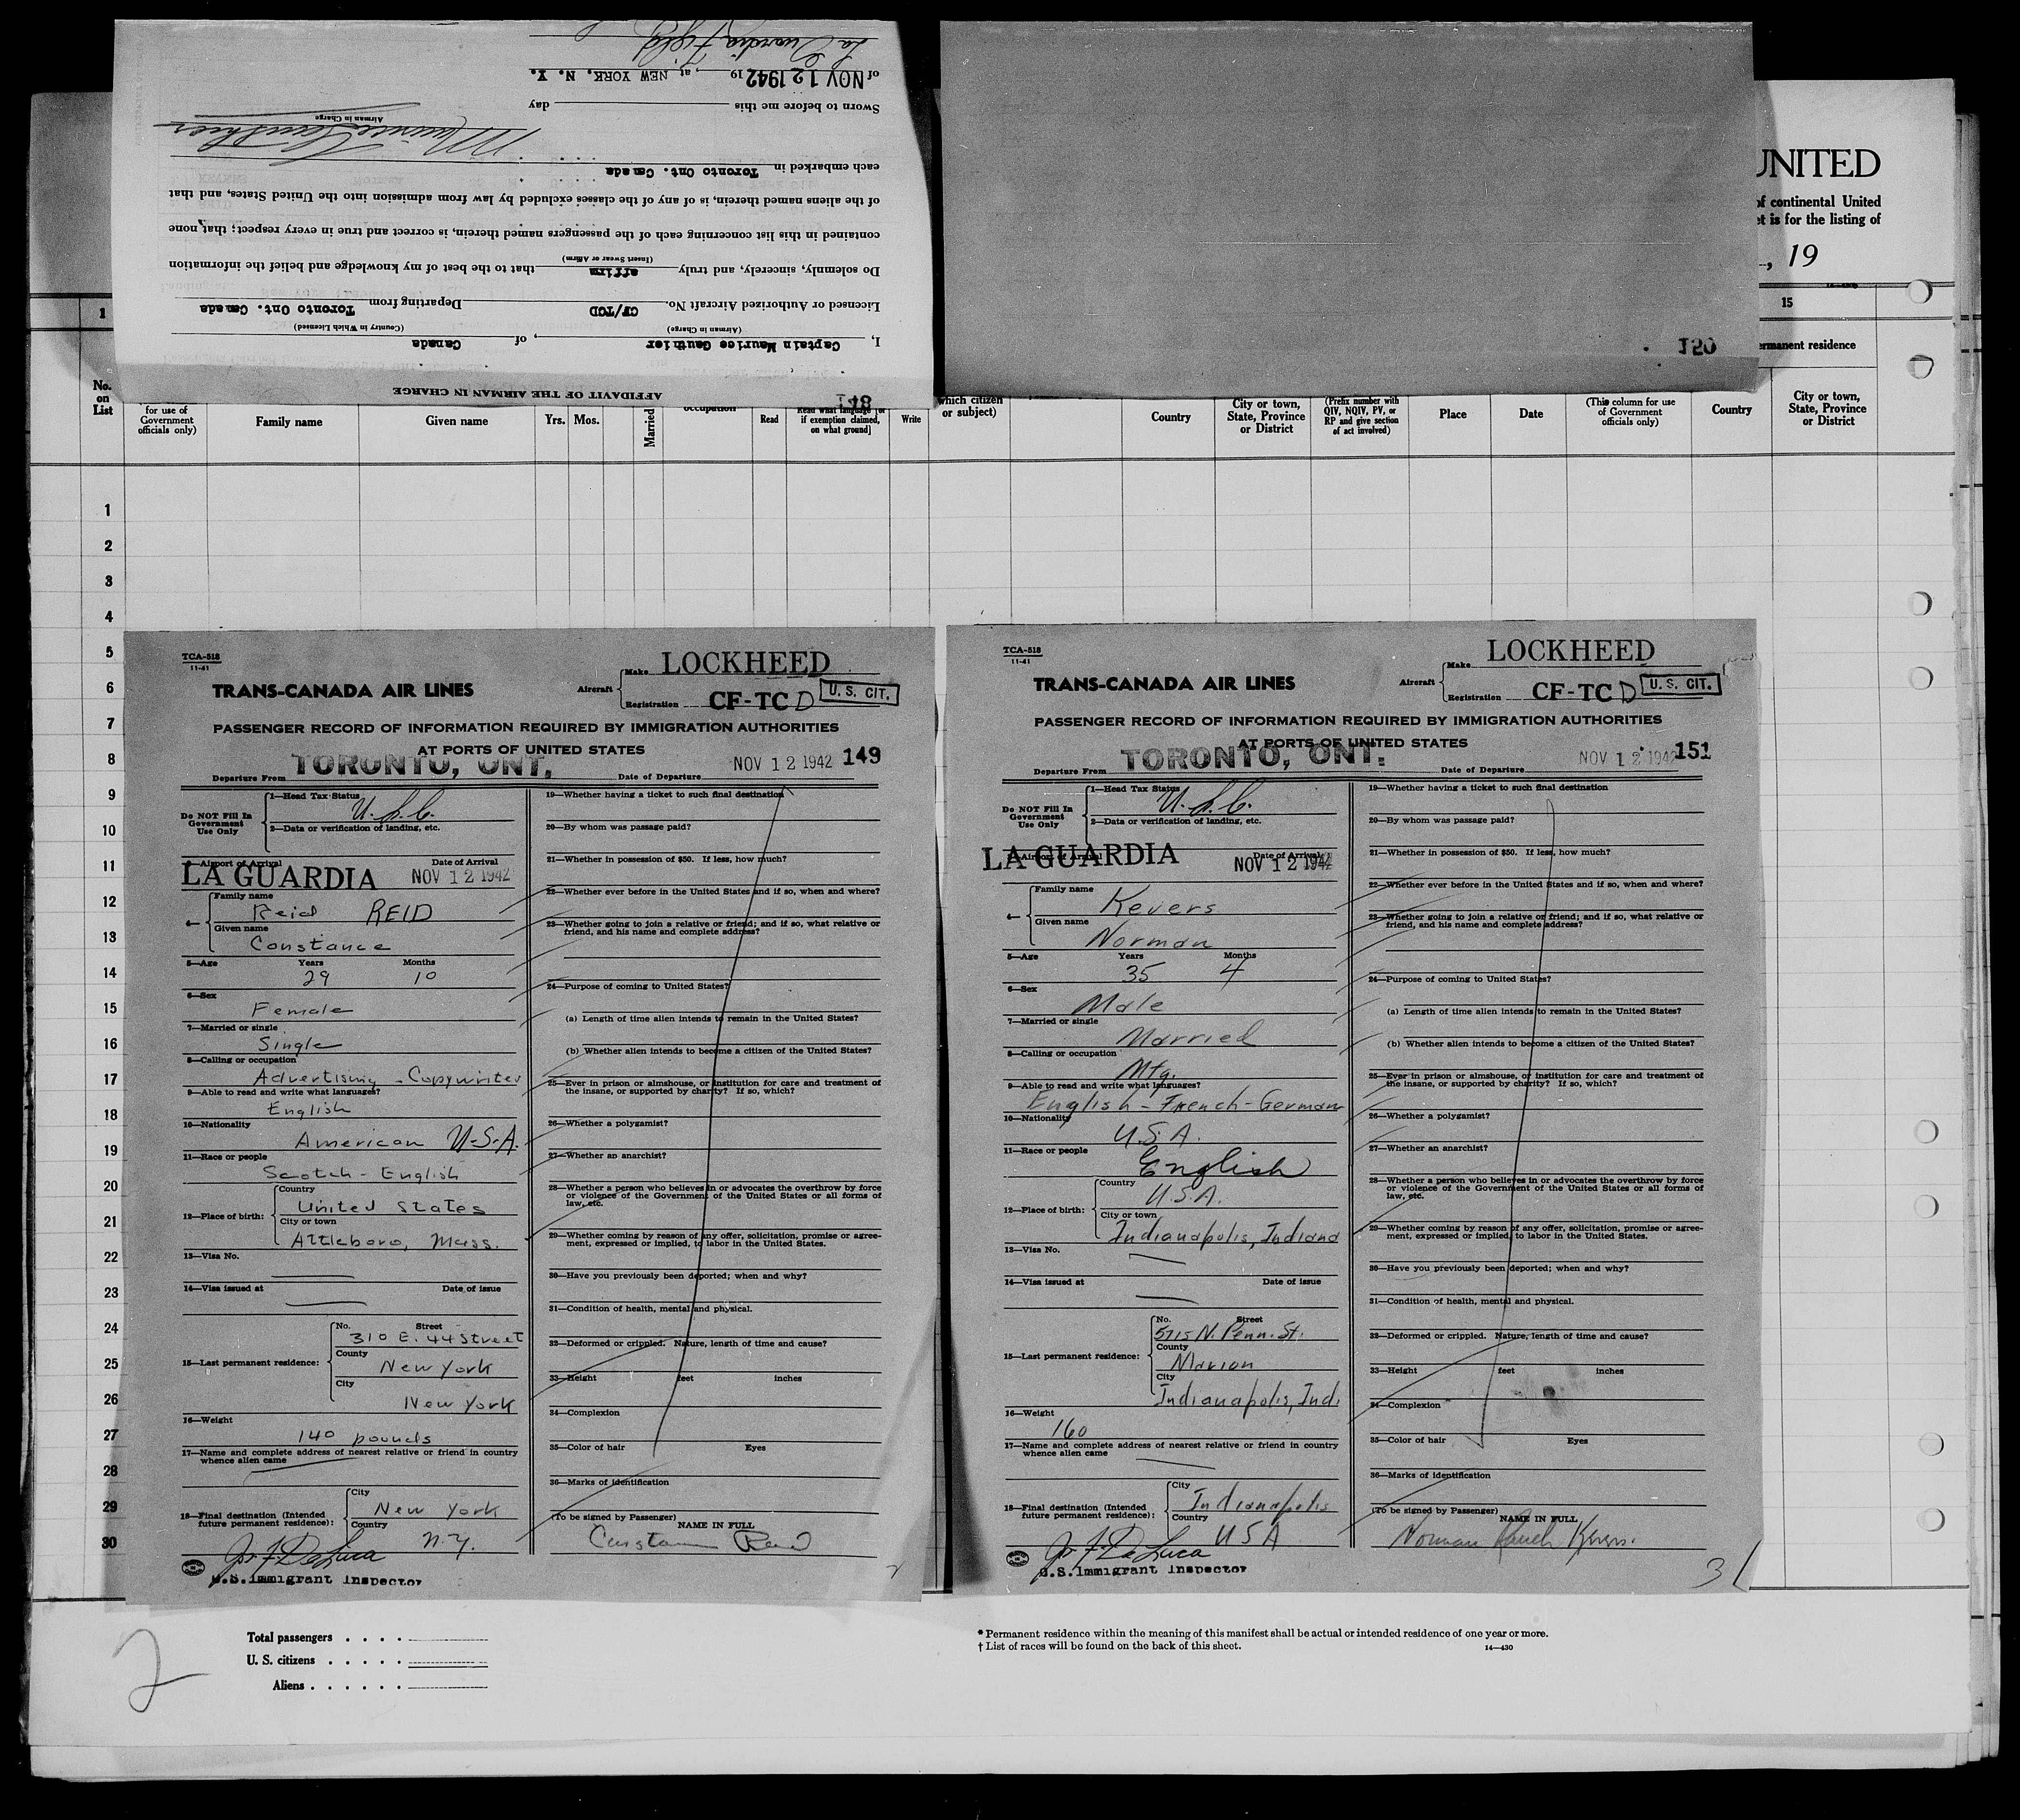 AFFIDAVIT OF THE AIRMAN IN CHARGE
148
I, Captain Maurice Gauthier, of Canada
(Airman in Charge) (Country in Which Licensed)
Licensed or Authorized Aircraft No. CF/TCD Departing from Toronto Ont. Canada
Do solemnly, sincerely, and truly affirm that to the best of my knowledge and belief the information
(Insert Swear or Affirm)
contained in this list concerning each of the passengers named therein, is correct and true in every respect; that none
of the aliens named therein, is of any of the classes excluded by law from admission into the United States, and that
each embarked in Toronto Ont. Canada
Maurice Gauthier
Airman in Charge
Sworn to before me this day
of NOV 12 1942 19 , at NEW YORK, N. Y.
La Guardia Field
UNITED
of continental United
et is for the listing of
, 19
1
15
120
ermanent residence
No. on List
for use of Government officials only)
Family name
Given name
Yrs.
Mos.
Married
occupation
Read
Read what language [or if exemption claimed, on what ground]
Write
which citizen or subject)
Country
City or town, State, Province or District
(Prefix number with QIV, NQIV, PV, or RP and give section of act involved)
Place
Date
(This column for use of Government officials only)
Country
City or town, State, Province or District
1
2
3
4
5
6
7
8
9
10
11
12
13
14
15
16
17
18
19
20
21
22
23
24
25
26
27
28
29
30
TCA-518
11-41
TRANS-CANADA AIR LINES
Aircraft
Make LOCKHEED
Registration CF-TC D
U. S. CIT.
PASSENGER RECORD OF INFORMATION REQUIRED BY IMMIGRATION AUTHORITIES
AT PORTS OF UNITED STATES
Departure From TORONTO, ONT. Date of Departure NOV 12 1942 149
Do NOT Fill In Government Use Only
1—Head Tax Status
U.S.C.
2—Data or verification of landing, etc.
3—Airport of Arrival Date of Arrival
LA GUARDIA NOV 12 1942
4— Family name
Reid REID
Given name
Constance
5—Age Years Months
29 10
6—Sex
Female
7—Married or single
Single
8—Calling or occupation
Advertising - Copywriter
9—Able to read and write what languages?
English
10—Nationality
American U-S-A.
11—Race or people
Scotch - English
12—Place of birth:
Country
United States
City or town
Attleboro, Mass.
13—Visa No.
14—Visa issued at Date of issue
15—Last permanent residence:
No. Street
310 E. 44 Street
County
New York
City
New York
16—Weight
140 pounds
17—Name and complete address of nearest relative or friend in country
whence alien came
18—Final destination (Intended
future permanent residence):
City
New York
Country
N.Y.
Jos. F. DeLuca
U.S. Immigrant Inspector
19—Whether having a ticket to such final destination
20—By whom was passage paid?
21—Whether in possession of $50. If less, how much?
22—Whether ever before in the United States and if so, when and where?
23—Whether going to join a relative or friend; and if so, what relative or
friend, and his name and complete address?
24—Purpose of coming to United States?
(a) Length of time alien intends to remain in the United States?
(b) Whether alien intends to become a citizen of the United States?
25—Ever in prison or almshouse, or institution for care and treatment of
the insane, or supported by charity? If so, which?
26—Whether a polygamist?
27—Whether an anarchist?
28—Whether a person who believes in or advocates the overthrow by force
or violence of the Government of the United States or all forms of
law, etc.
29—Whether coming by reason of any offer, solicitation, promise or agree-
ment, expressed or implied, to labor in the United States.
30—Have you previously been deported; when and why?
31—Condition of health, mental and physical.
32—Deformed or crippled. Nature, length of time and cause?
33—Height feet inches
34—Complexion
35—Color of hair Eyes
36—Marks of identification
(To be signed by Passenger)
NAME IN FULL
Constance Reid
2
TCA-518
11-41
TRANS-CANADA AIR LINES
Aircraft
Make LOCKHEED
Registration CF-TC D
U. S. CIT.
PASSENGER RECORD OF INFORMATION REQUIRED BY IMMIGRATION AUTHORITIES
AT PORTS OF UNITED STATES
Departure From TORONTO, ONT. Date of Departure NOV 12 1942 151
Do NOT Fill In Government Use Only
1—Head Tax Status
U.S.C.
2—Data or verification of landing, etc.
3—Airport of Arrival Date of Arrival
LA GUARDIA NOV 12 1942
4— Family name
Kevers
Given name
Norman
5—Age Years Months
35 4
6—Sex
Male
7—Married or single
Married
8—Calling or occupation
Mfg.
9—Able to read and write what languages?
English - French - German
10—Nationality
U.S.A.
11—Race or people
English
12—Place of birth:
Country
U.S.A.
City or town
Indianapolis, Indiana
13—Visa No.
14—Visa issued at Date of issue
15—Last permanent residence:
No. Street
5715 N. Penn. St.
County
Marion
City
Indianapolis, Ind.
16—Weight
160
17—Name and complete address of nearest relative or friend in country
whence alien came
18—Final destination (Intended
future permanent residence):
City
Indianapolis
Country
USA
Jos. F. DeLuca
U.S. Immigrant Inspector
19—Whether having a ticket to such final destination
20—By whom was passage paid?
21—Whether in possession of $50. If less, how much?
22—Whether ever before in the United States and if so, when and where?
23—Whether going to join a relative or friend; and if so, what relative or
friend, and his name and complete address?
24—Purpose of coming to United States?
(a) Length of time alien intends to remain in the United States?
(b) Whether alien intends to become a citizen of the United States?
25—Ever in prison or almshouse, or institution for care and treatment of
the insane, or supported by charity? If so, which?
26—Whether a polygamist?
27—Whether an anarchist?
28—Whether a person who believes in or advocates the overthrow by force
or violence of the Government of the United States or all forms of
law, etc.
29—Whether coming by reason of any offer, solicitation, promise or agree-
ment, expressed or implied, to labor in the United States.
30—Have you previously been deported; when and why?
31—Condition of health, mental and physical.
32—Deformed or crippled. Nature, length of time and cause?
33—Height feet inches
34—Complexion
35—Color of hair Eyes
36—Marks of identification
(To be signed by Passenger)
NAME IN FULL
Norman Kevers.
3
2
Total passengers . . . .
U. S. citizens . . . . .
Aliens . . . . . .
* Permanent residence within the meaning of this manifest shall be actual or intended residence of one year or more.
† List of races will be found on the back of this sheet. 14—430